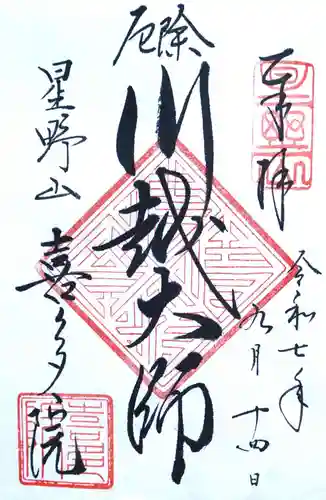 奉拝
令和七年
九月十四日
厄除
川越大師
星野山
喜多院